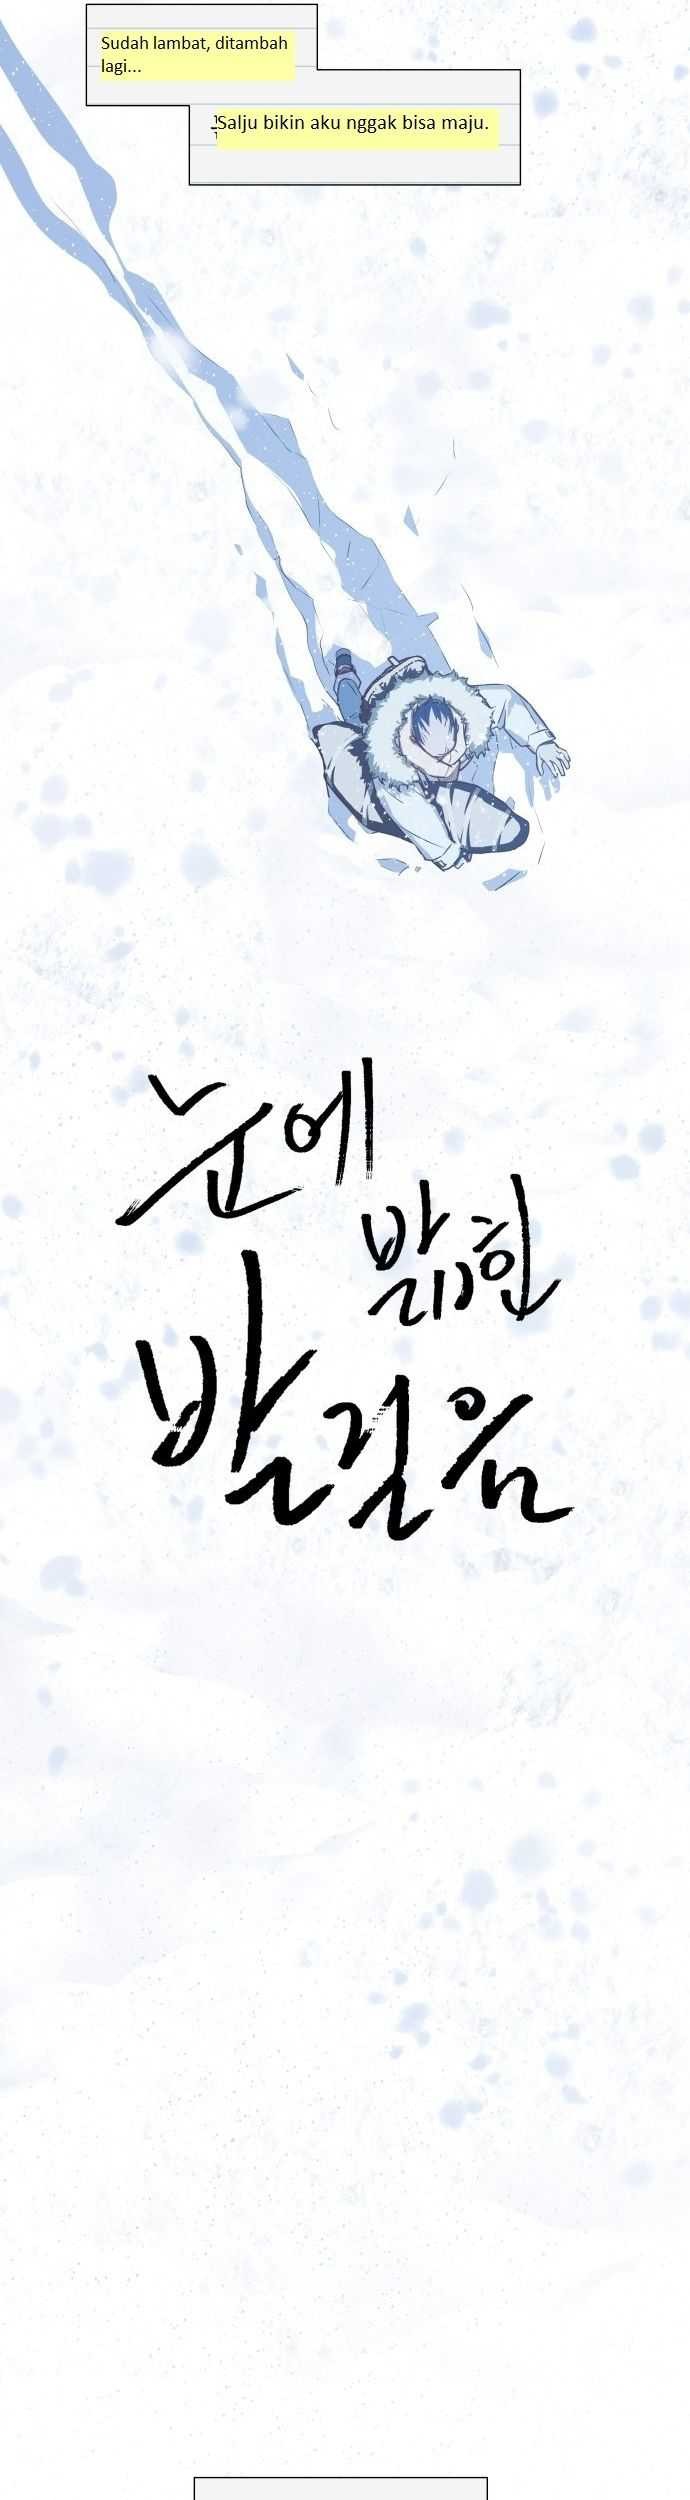 Sudah lambat, ditambah
lagi...
Salju bikin aku nggak bisa maju.
눈에
밟힌
발걸음